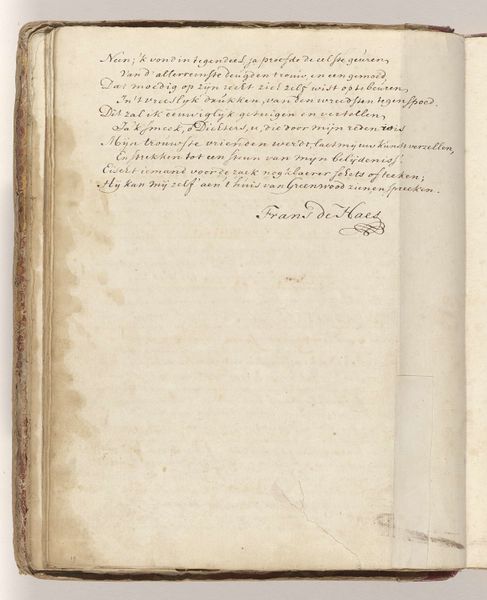 Neen; 'k vond in tegendeel, ja proefde de eelste geuren,
Van d' allerreinste deugden trouw, en een gemoed
Dat moedig op zyn recht zich zelf wist op te beuren,
In 't vreeslyk drukken, van den wreedsten tegenspoed.
Dit zal ik eeuwiglyk getuigen en vertellen,
Ja 'k smeek, o Dichters, u, die door mijn reden
Mijn trouwste vrienden werdt, laet my uw kunst verzellen,
En strekken tot een steun van mijn belijdenis!
Eischt iemand voor de zaek noch klaerer schets of teeken;
Hy kan mij zelf aen 't huis van Greenwood zien en spreeken.
Frans de Haes